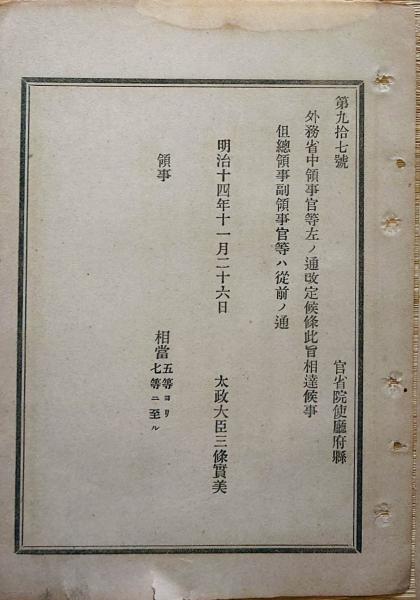 第九拾七號
官省院使廳府縣
外務省中領事官等左ノ通改定候條此旨相達候事
但總領事副領事官等ハ從前ノ通
明治十四年十一月二十六日
太政大臣三條實美
領事
相當五等ヨリ
七等ニ至ル